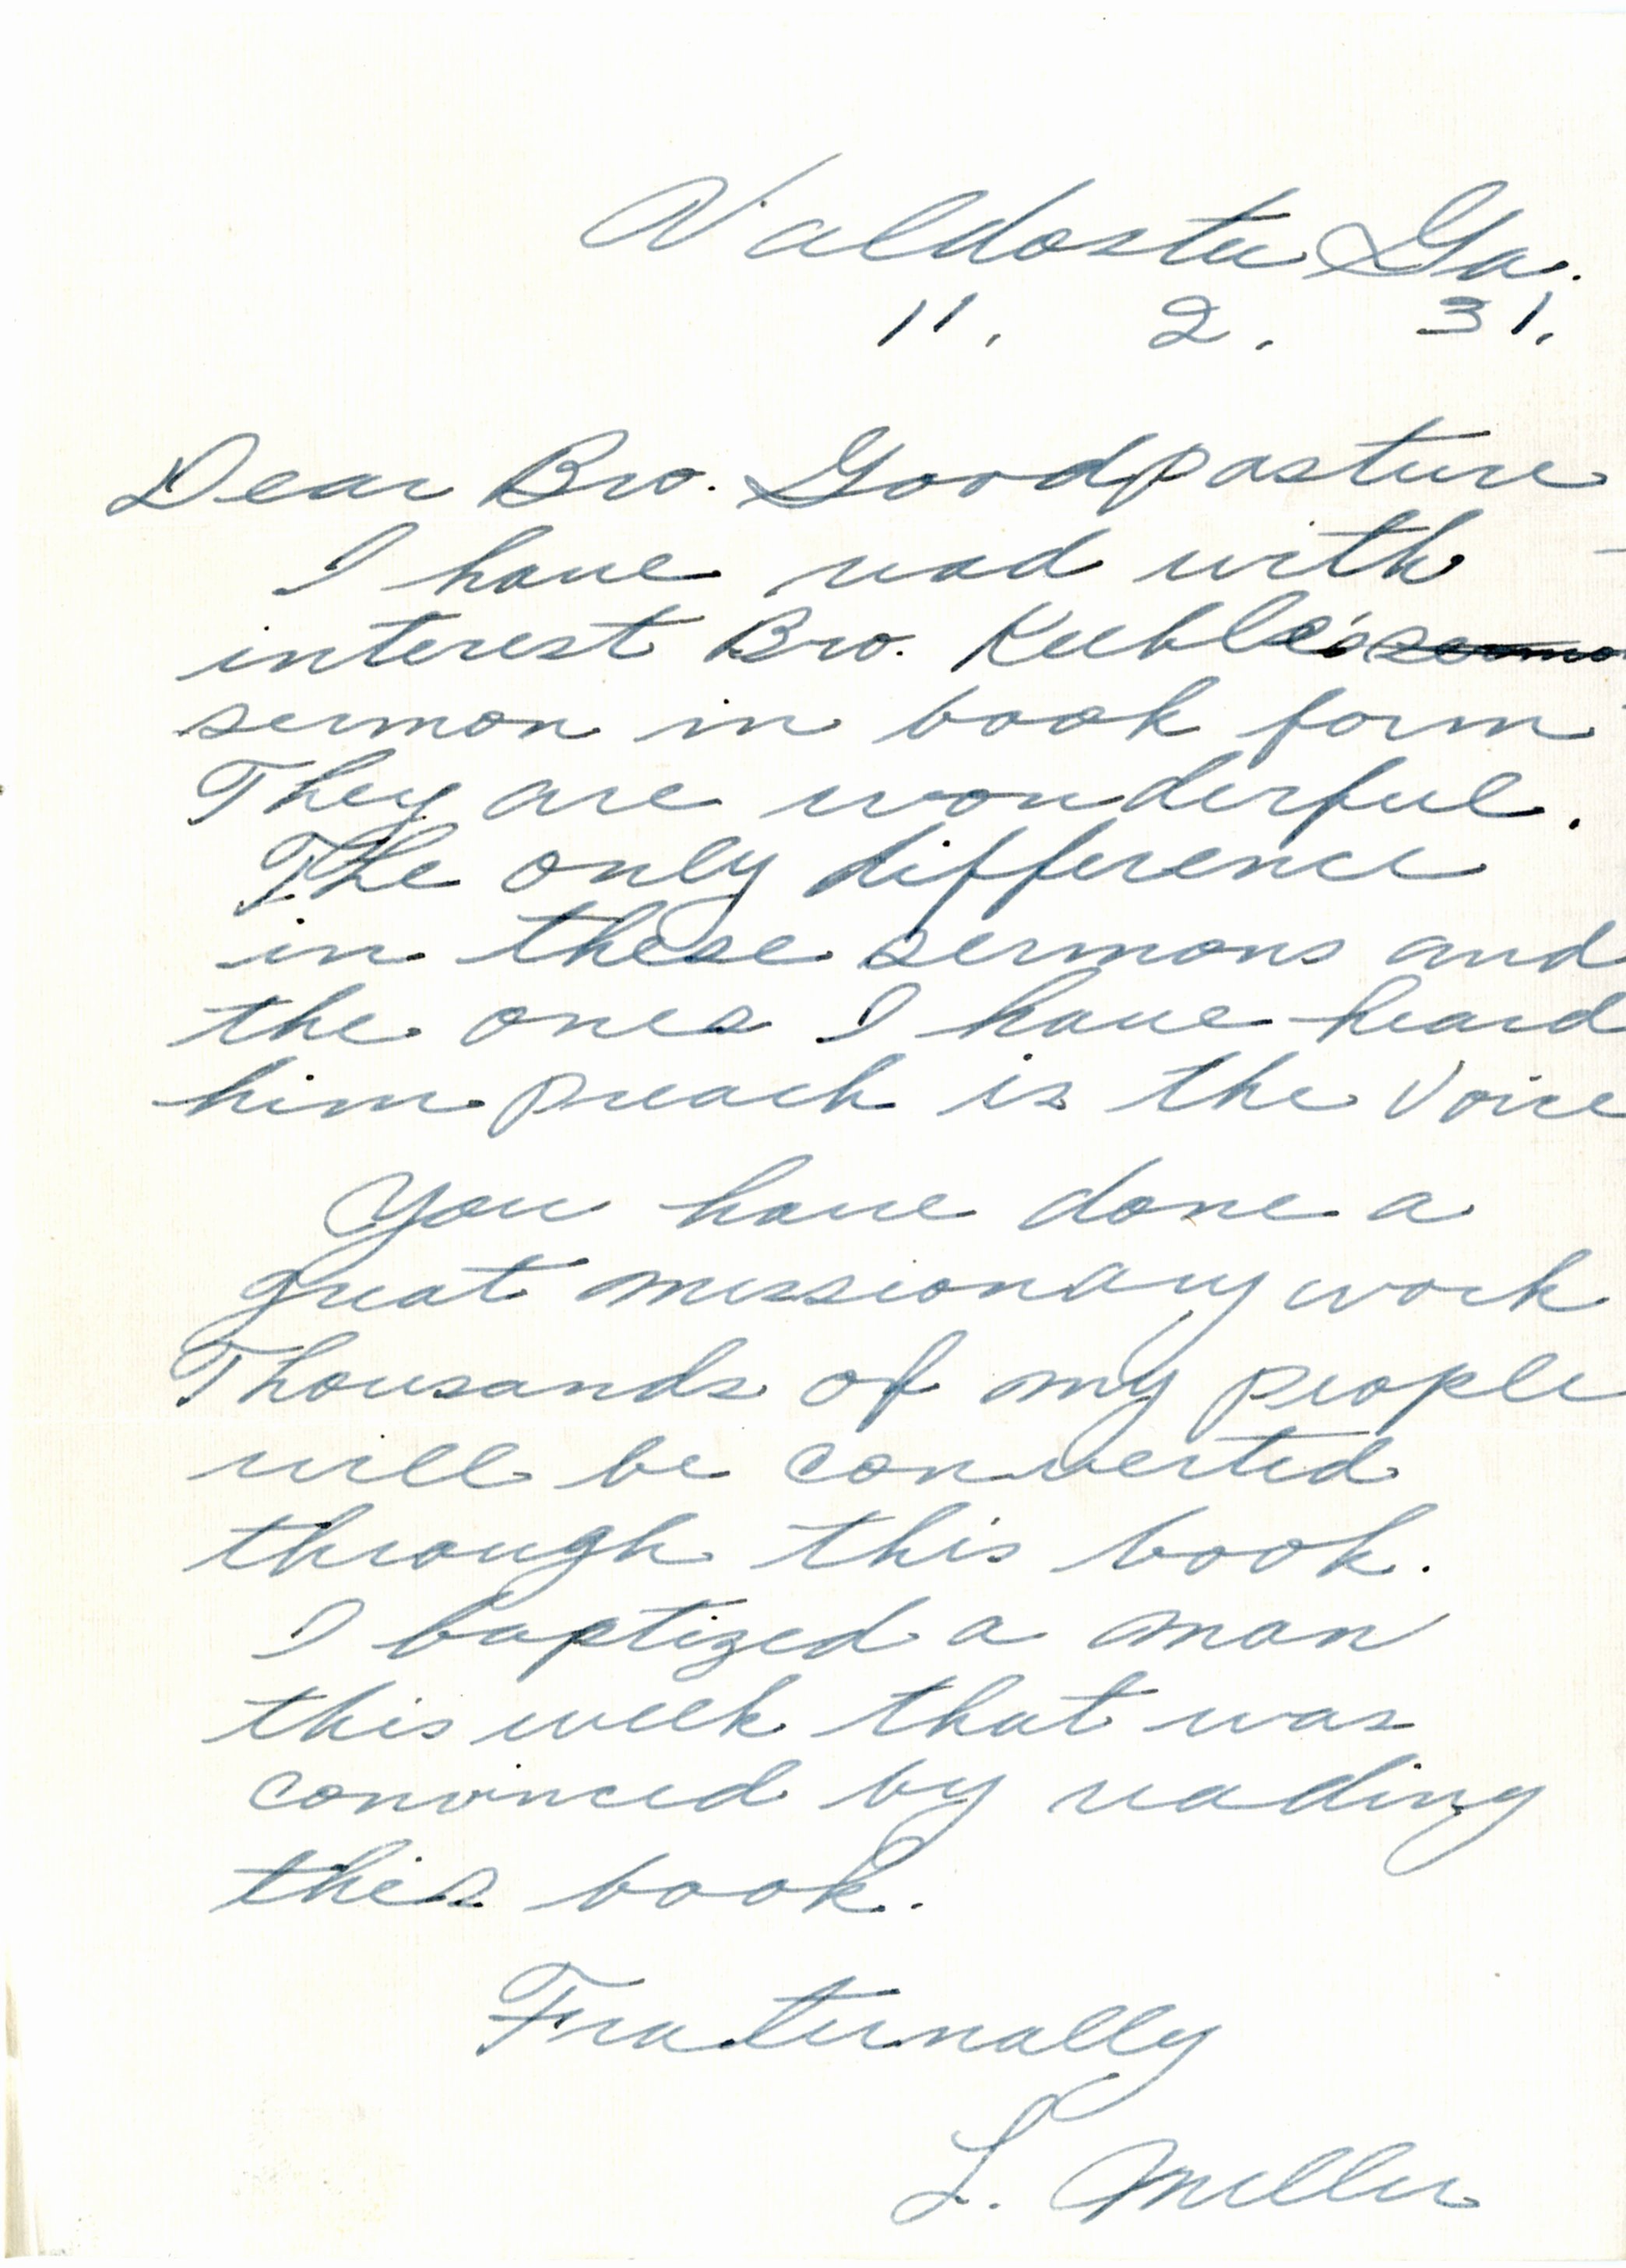 Valdosta Ga.
11. 2. 31.
Dear Bro. Goodpasture
I have read with
interest Bro. Keeble's
sermon in book form
They are wonderful.
The only difference
in these sermons and
the ones I have heard
him preach is the Voice
You have done a
great missionary work
Thousands of my people
will be converted
through this book.
I baptized a man
this week that was
convinced by reading
this book.
Fraternally
L. Miller